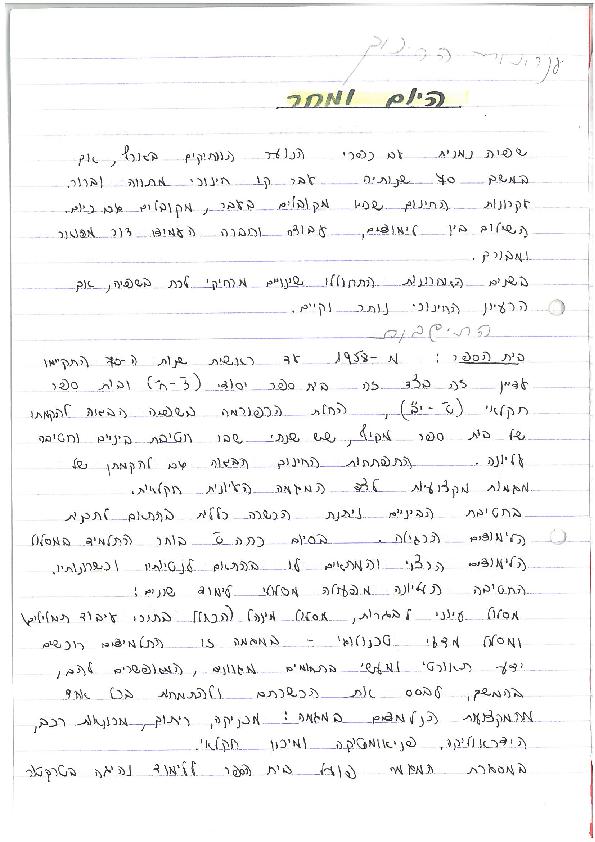 עקרונות החינוך
היום ומחר
שפיה נמנית עם כפרי הנוער הוותיקים בארץ, אך
במשך 70 שנותיה עבר קו חינוכי מתווה וברור.
עקרונות החינוך שהיו מקובלים בעבר, מקובלים גם כיום.
השילוב בין לימודים, עבודה וחברה העמיד דור מפואר
ומבורך.
בשנים האחרונות התחוללו שינויים מרחיקי לכת בשפיה, אך
הרעיון החינוכי נותר וקיים.
בית הספר: מ-1953 עד ראשית שנות ה-70 התקיימו
עדיין זה בצד זה בית ספר יסודי (ג-ח) ובית ספר
חקלאי (ט-יב), החלת הרפורמה בשפיה הביאה להקמתו
של בית ספר מקיף, שש שנתי שבו חטיבת ביניים וחטיבה
עליונה. התפתחות החינוך הביאה גם להקמתן של
מגמות מקצועיות לצד המגמה העיונית חקלאית.
בחטיבת הביניים ניתנת הכשרה כללית בהתאם לתכנית
הלימודים הרגילה. בסיום כתה ט בוחר התלמיד במסלול
הלימודים הרצוי והמתאים לו בהתאם לנטיותיו וכשרונותיו.
החטיבה העליונה מפעילה מסלולי לימוד שונים:
מסלול עיוני לבגרות, מסלול מינהל (הכולל בתוכו עיבוד תמלילים)
ומסלול מדעי טכנולוגי - במגמה זו התלמידים רוכשים
ידע תאורטי ומעשי בתחומים מגוונים, המאפשרים להם,
בהמשך, לבסס את הכשרתם ולהתמחות בכל אחד
מהמקצועות הנלמדים במגמה: מכניקה, ריתוך, מכונאות רכב,
הידראוליקה, פניאומטיקה ומיכון חקלאי.
במסגרת המגמה פועל בית הספר ללימוד נהיגה בטרקטור